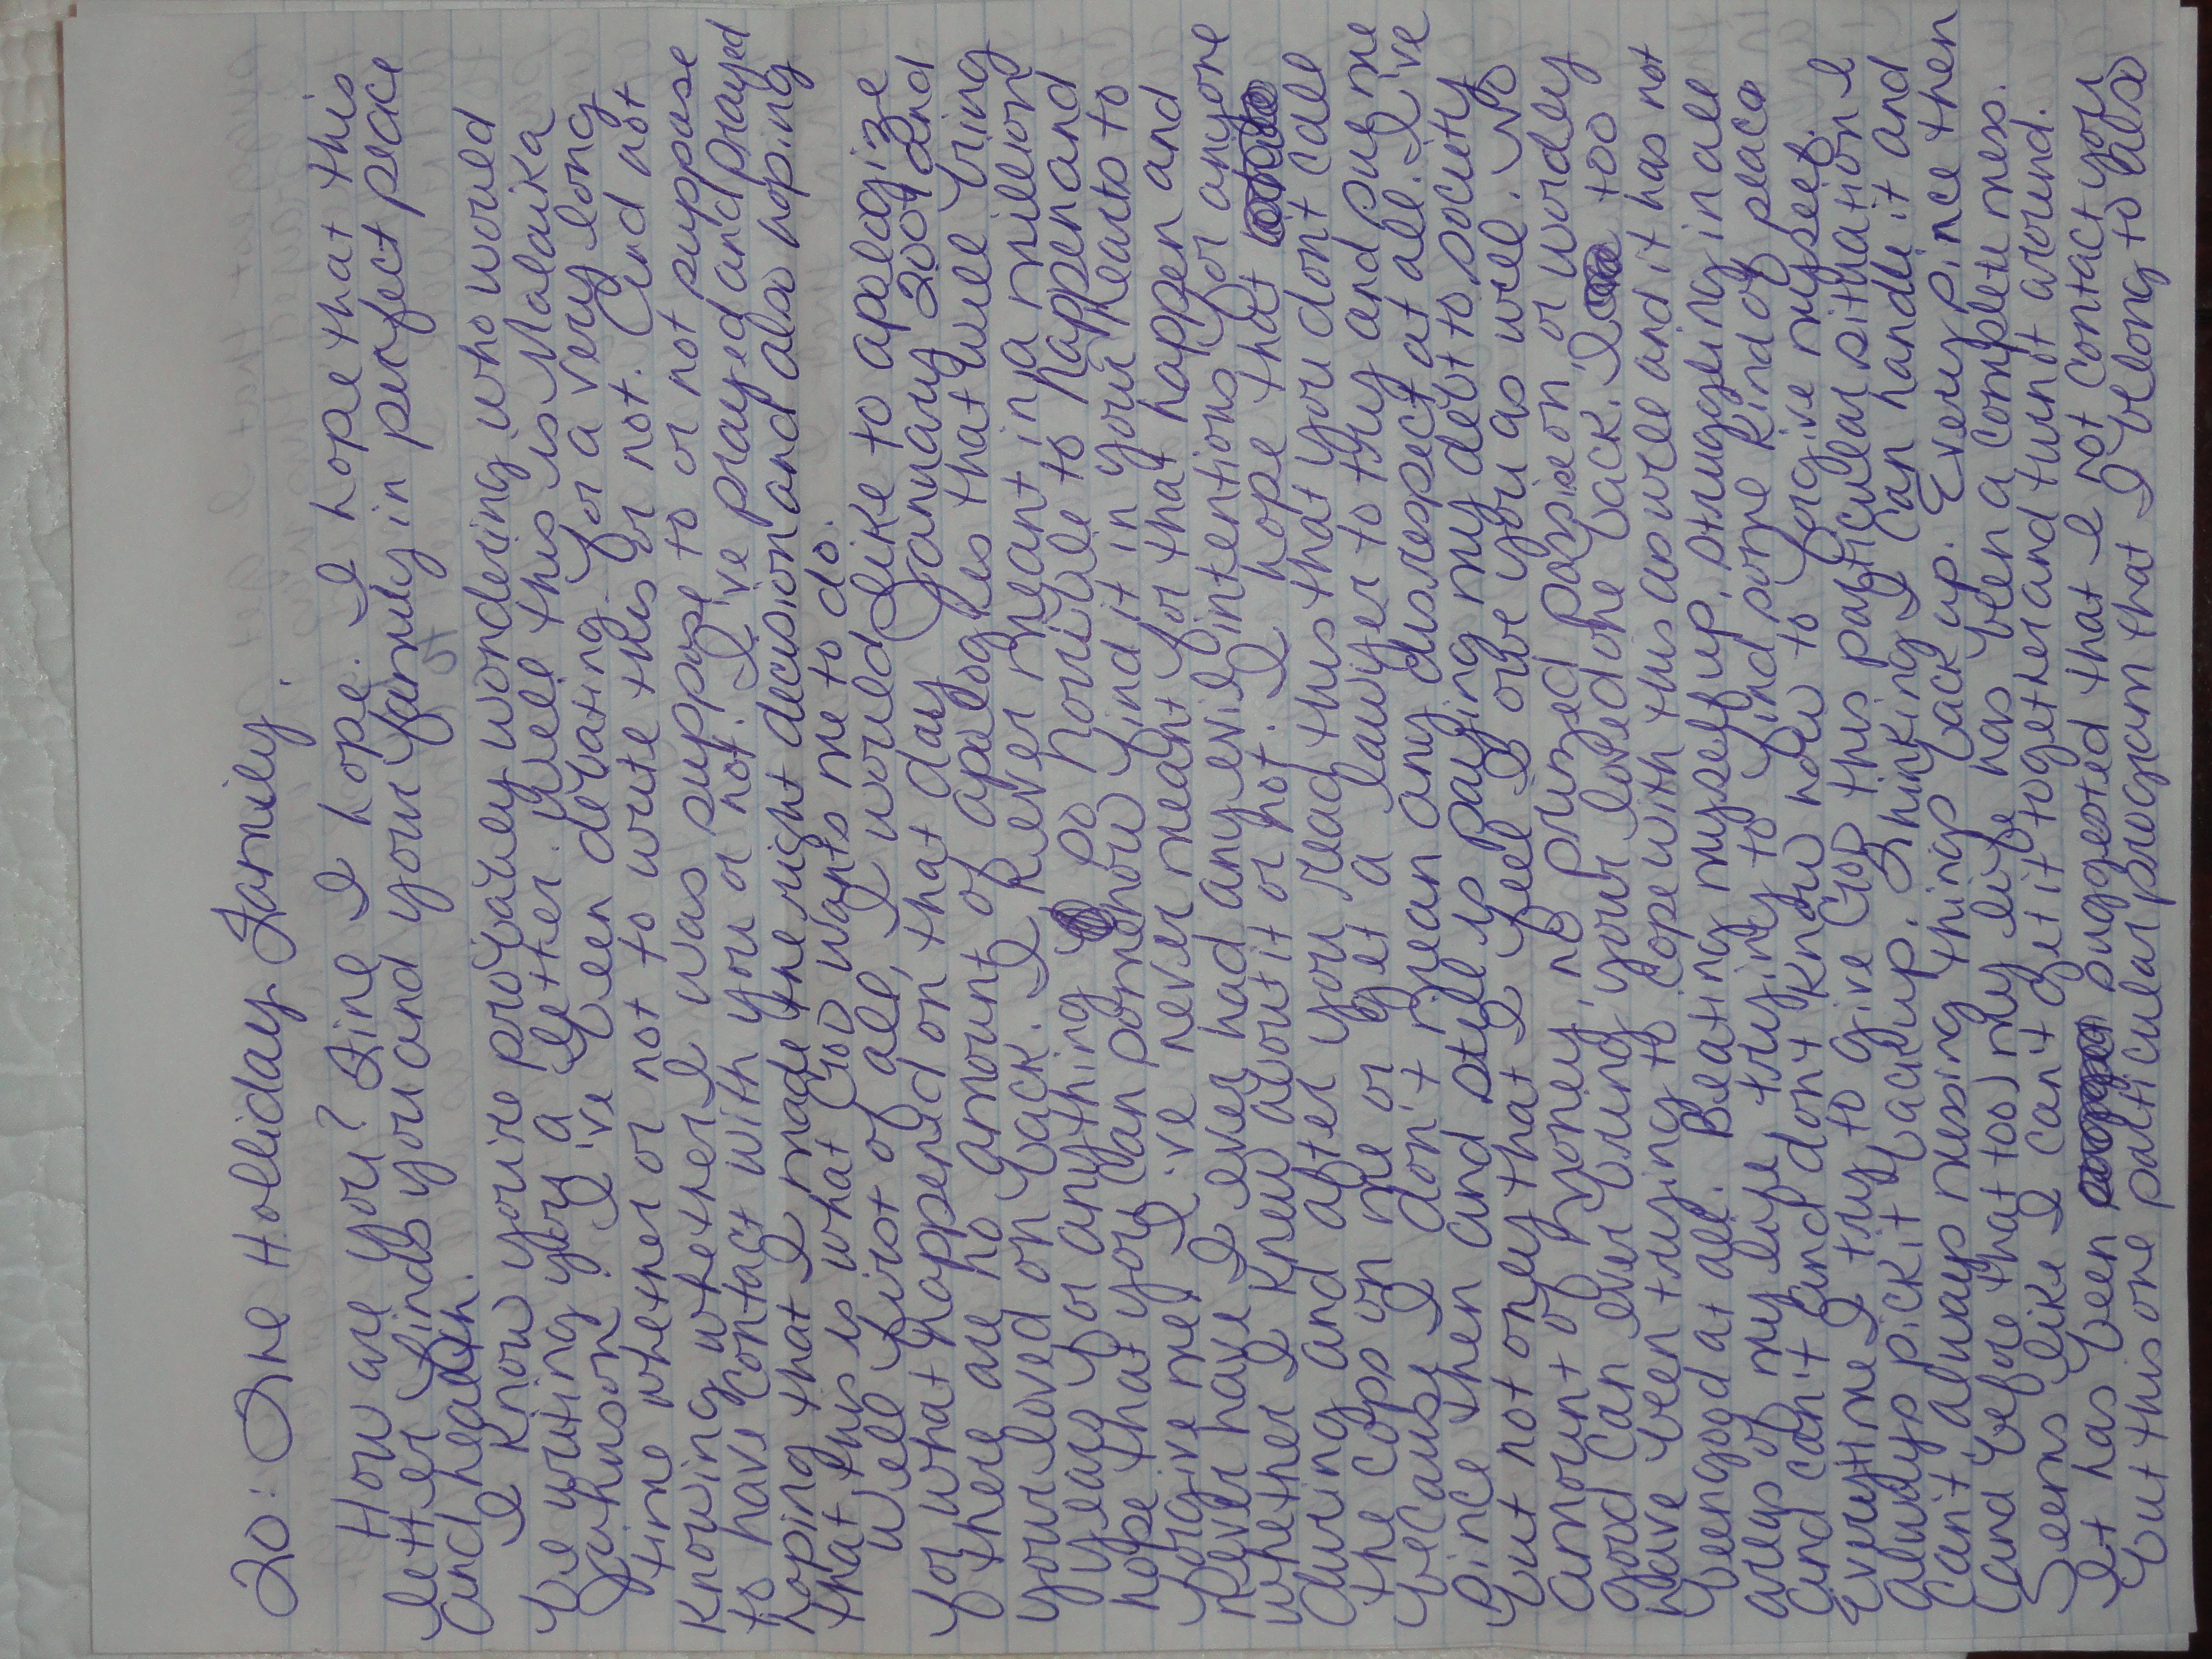 To: The Holliday Family.
How are you? Fine I hope. I hope that this
letter finds you and your family in perfect peace
and health.
I know you're probably wondering who would
be writing you a letter. Well this is Malaika
Johnson. I've been debating for a very long
time whether or not to write this or not. And not
knowing whether I was suppose to or not suppose
to have contact with you or not. I've prayed and prayed
hoping that I made the right decision and also hoping
that this is what God wants me to do.
Well first of all, I would like to apologize
for what happened on that day January 2001 and
there are no amount of apologies that will bring
your loved on back. I never meant in a million
years for anything so horrible to happen and
hope that you can somehow find it in your hearts to
forgive me. I've never meant for that to happen and
never have I ever had any evil intentions for anyone
whether I knew about it or not. I hope that
during and after you read this that you don't call
the cops on me or get a lawyer to try and sue me
because I don't mean any disrespect at all. I've
since then and still is paying my debt to society
but not only that I feel I owe you as well. No
amount of money, no prized passion, or wordly
good can ever bring your loved one back. I too
have been trying to cope with this as well and it has not
been good at all. Beating myself up, struggling in all
areas of my life trying to find some kind of peace
and can't and don't know how to forgive myself.
Everytime I try to give God this particular situation I
always pick it back up. Thinking I can handle it and
can't always messing things back up. Every since then
(and before that too) my life has been a complete mess.
Seems like I can't get it together and turn it around.
It has been suggested that I not contact you
but this one particular program that I belong to also